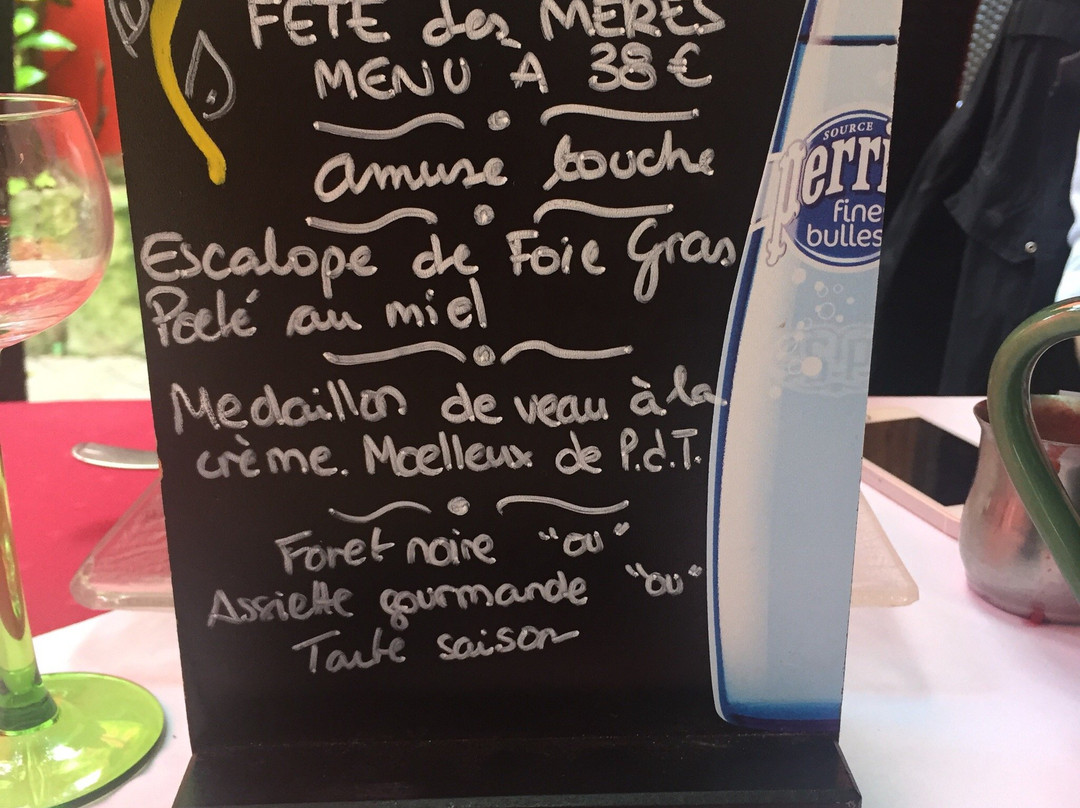 FÊTE des MÈRES
MENU A 38 €
amuse bouche
Escalope de Foie Gras
Poelé au miel
Medaillon de veau à la
crème. Moelleux de P.d.T.
Foret noire "ou"
Assiette gourmande "ou"
Tarte saison
SOURCE
perri
fine
bulles